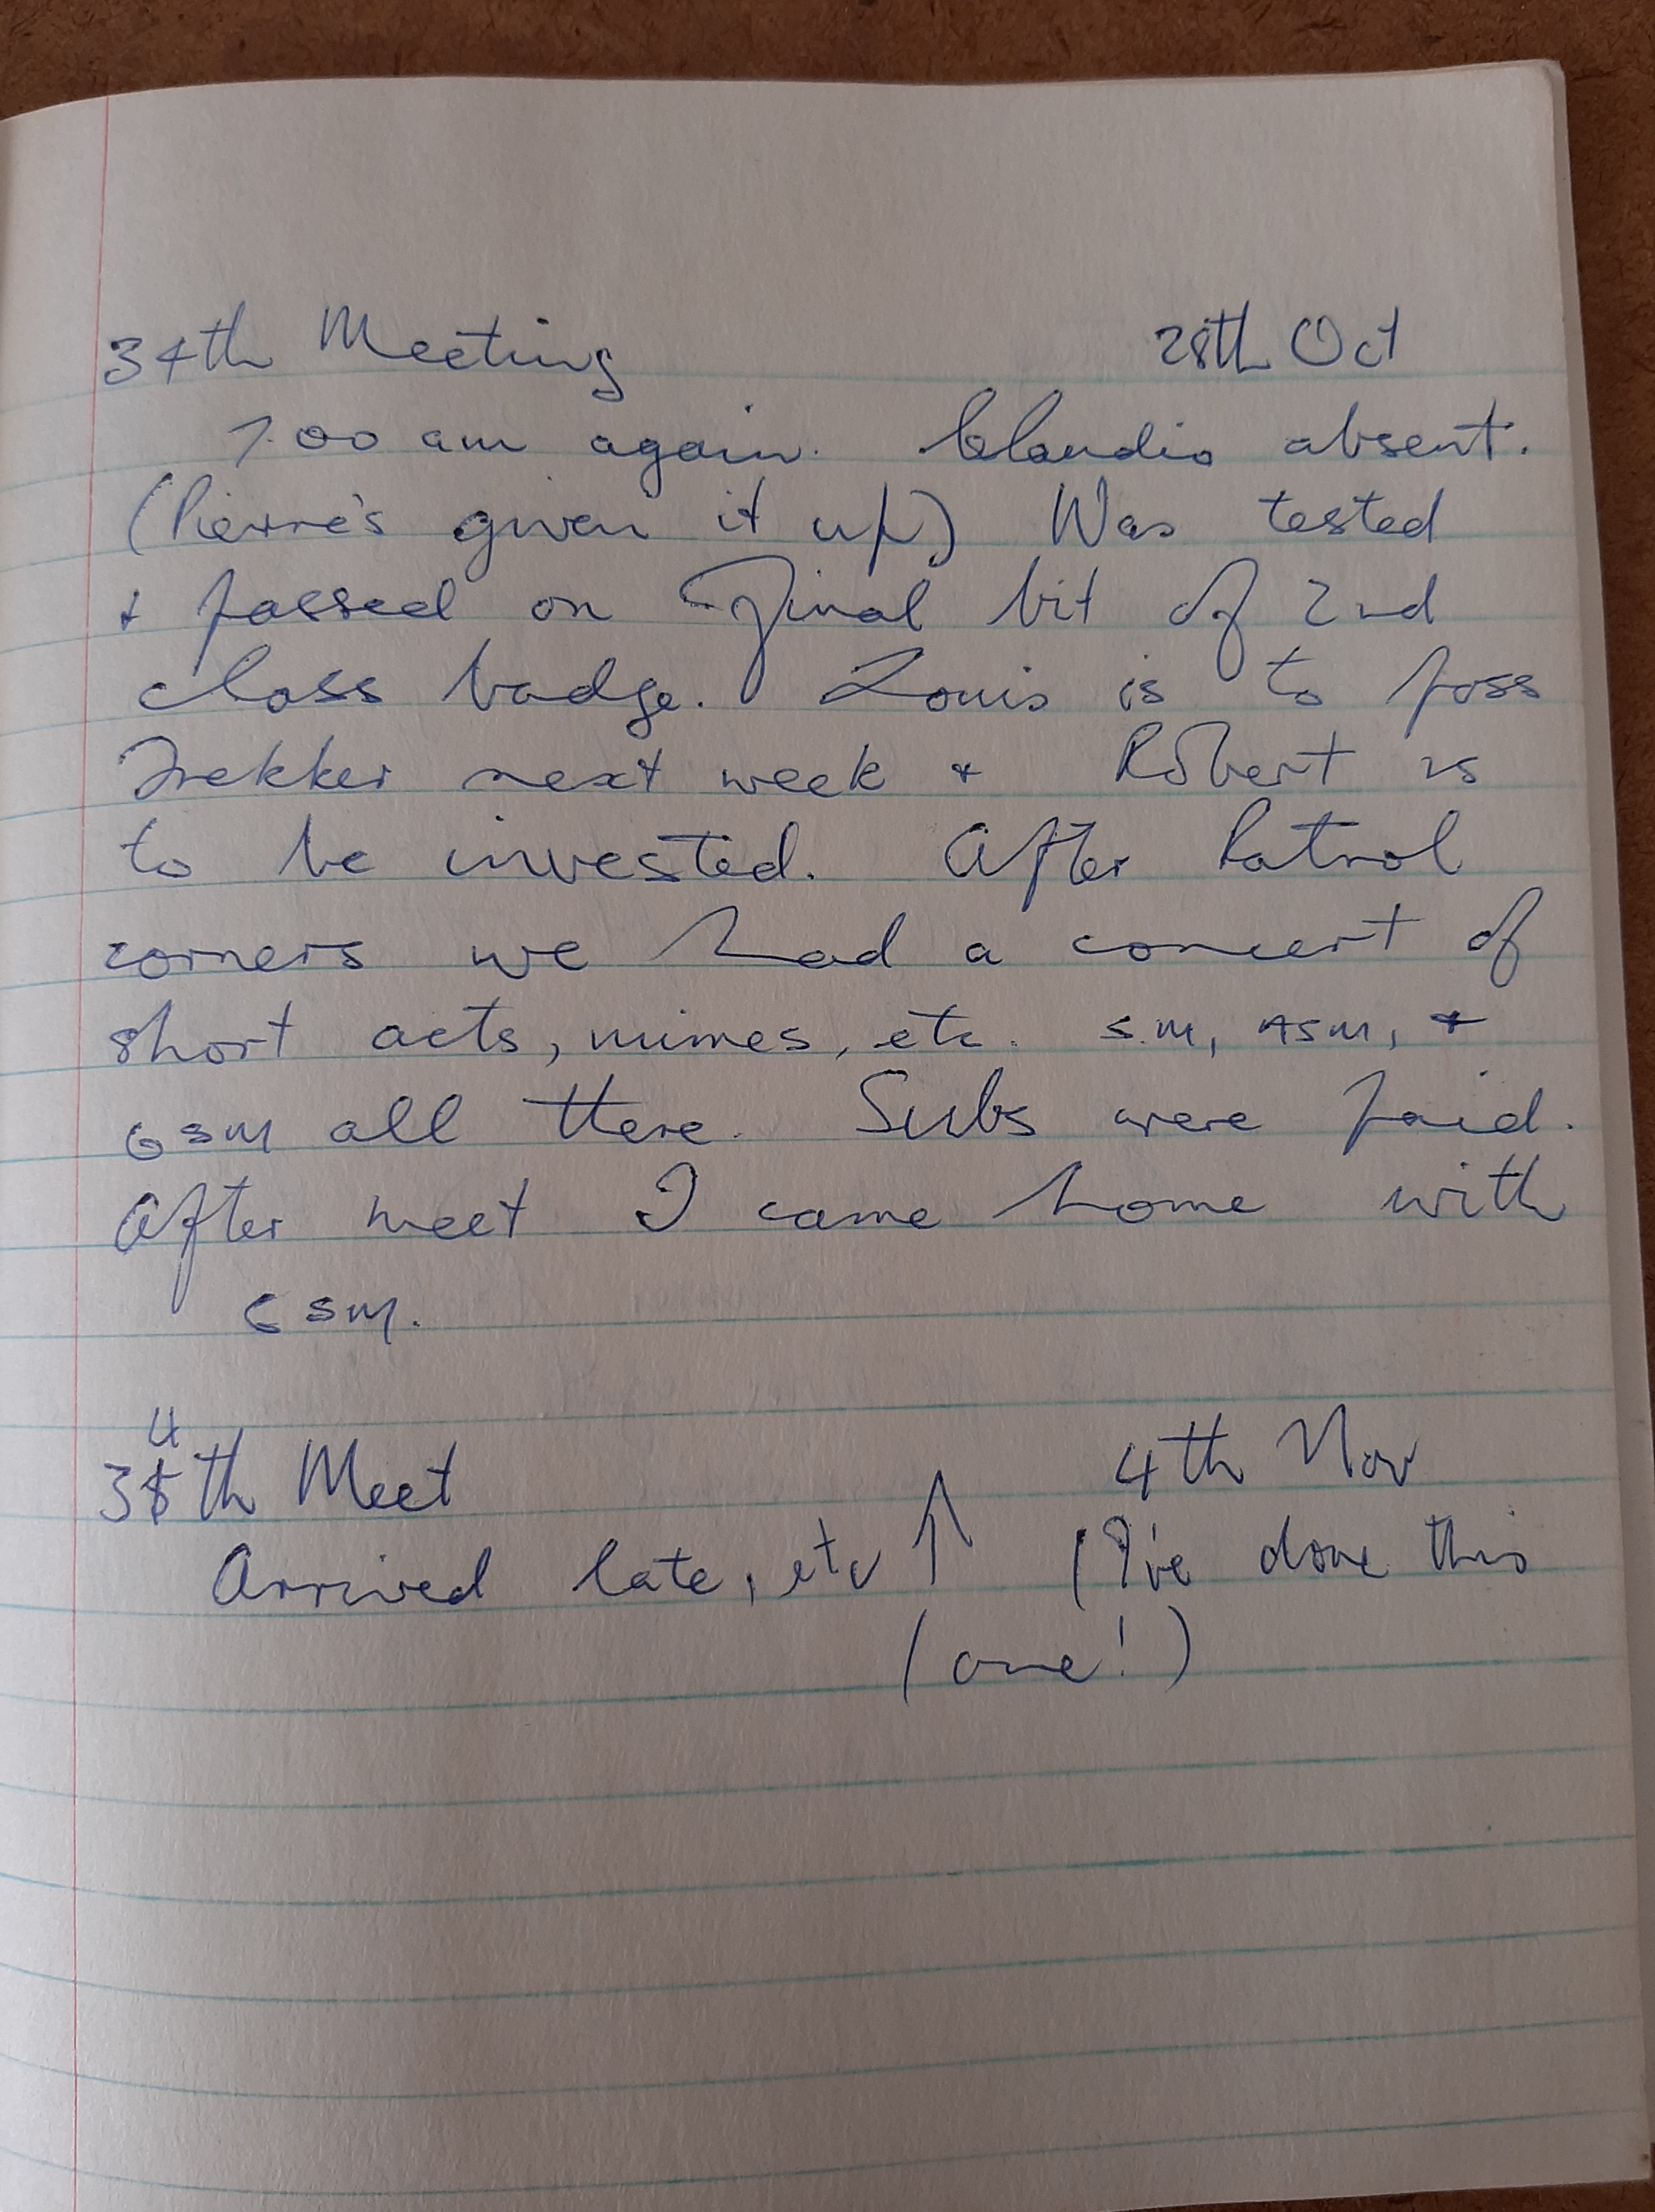 34th Meeting 28th Oct
7.00 am again. Claudio absent.
(Pierre's given it up) Was tested
+ passed on final bit of 2nd
class badge. Louis is to pass
Trekker next week + Robert is
to be invested. After Patrol
corners we had a concert of
short acts, mimes, etc. S.M, ASM, +
GSM all there. Subs were paid.
After meet I came home with
GSM.
4
35th Meet 4th Nov
Arrived late, etc ↑ (I've done this
(one!)